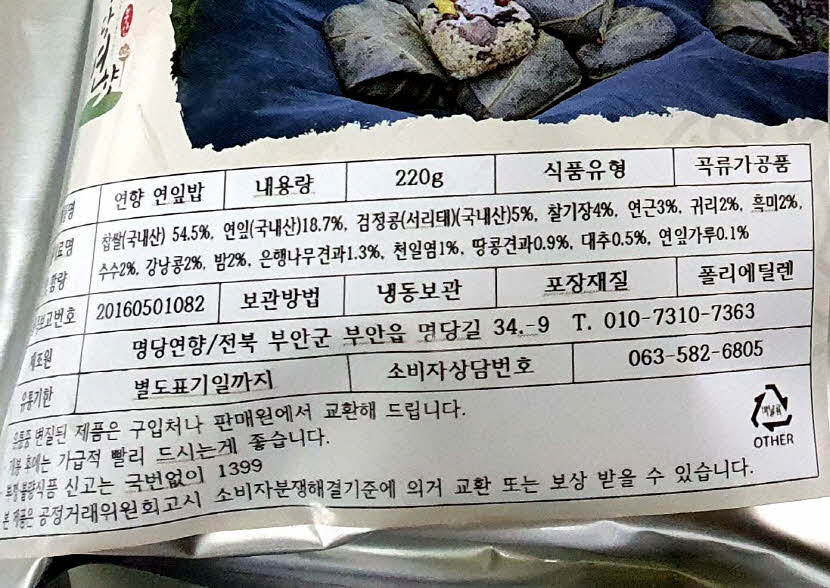 연향 연잎밥 내용량 220g 식품유형 곡류가공품
찹쌀(국내산) 54.5%, 연잎(국내산)18.7%, 검정콩(서리태)(국내산)5%, 찰기장4%, 연근3%, 귀리2%, 흑미2%,
수수2%, 강낭콩2%, 밤2%, 은행나무견과1.3%, 천일염1%, 땅콩견과0.9%, 대추0.5%, 연잎가루0.1%
함량
보고번호 20160501082 보관방법 냉동보관 포장재질 폴리에틸렌
제조원 명당연향/전북 부안군 부안읍 명당길 34.-9 T. 010-7310-7363
유통기한 별도표기일까지 소비자상담번호 063-582-6805
유통중 변질된 제품은 구입처나 판매원에서 교환해 드립니다.
개봉 후에는 가급적 빨리 드시는게 좋습니다.
부정·불량식품 신고는 국번없이 1399
본 제품은 공정거래위원회고시 소비자분쟁해결기준에 의거 교환 또는 보상 받을 수 있습니다.
OTHER